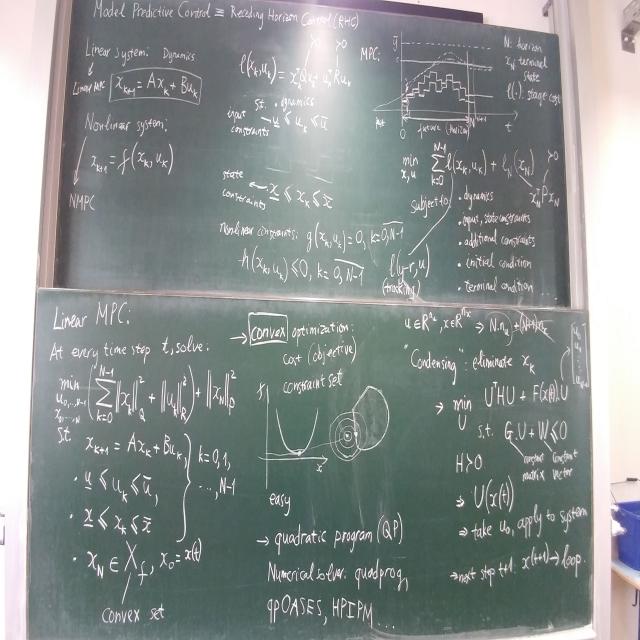 Model Predictive Control ≡ Receding Horizon Control (RHC)
Linear system: Dynamics
Linear MPC
x_{k+1} = Ax_k + Bu_k
Nonlinear system:
x_{k+1} = f(x_k, u_k)
NMPC
>0 >0
l(x_k, u_k) = x_k^T Q x_k + u_k^T R u_k
s.t. dynamics
input constraints u ≤ u_k ≤ ū
state constraints x ≤ x_k ≤ x̄
Nonlinear constraints: g(x_k, u_k) = 0, k=0,N-1
h(x_k, u_k) ≤ 0, k=0,N-1
l(y-r, u)
(tracking)
MPC:
past
0
future (horizon)
t
N: horizon
x_N terminal state
l(·): stage cost
min x,u Σ_{k=0}^{N-1} l(x_k, u_k) + l_N(x_N)
>0
x_N^T P x_N
subject to:
• dynamics
• input, state constraints
• additional constraints
• initial condition
• terminal condition
Linear MPC:
At every time step t, solve:
min ( Σ_{k=0}^{N-1} ||x_k||²_Q + ||u_k||²_R ) + ||x_N||²
s.t.
x_{k+1} = Ax_k + Bu_k,
• u ≤ u_k ≤ ū,
• x ≤ x_k ≤ x̄
k=0,1,
..., N-1
• x_N ∈ X_f, x_0 = x(t)
convex set
→ convex optimization:
cost (objective)
constraint set
f
x
easy
→ quadratic program (QP)
Numerical solver: quadprog,
qpOASES, HPIPM
"Condensing": eliminate x_k
→ min U U^T H U + F(x(t))·U
s.t. G·U + W ≤ 0
constant matrix constant vector
H > 0
⇒ U(x(t))
⇒ take u_0, apply to system
⇒ next step t+1: x(t+1) → loop.